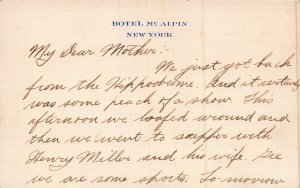 HOTEL McALPIN
NEW YORK
My Dear Mother:-
We just got back
from the Hippodrome. And it certainly
was some peach of a show. This
afternoon we loafed around and
then we went to supper with
Henry Miller and his wife. Gee
we are some sports. To-morrow